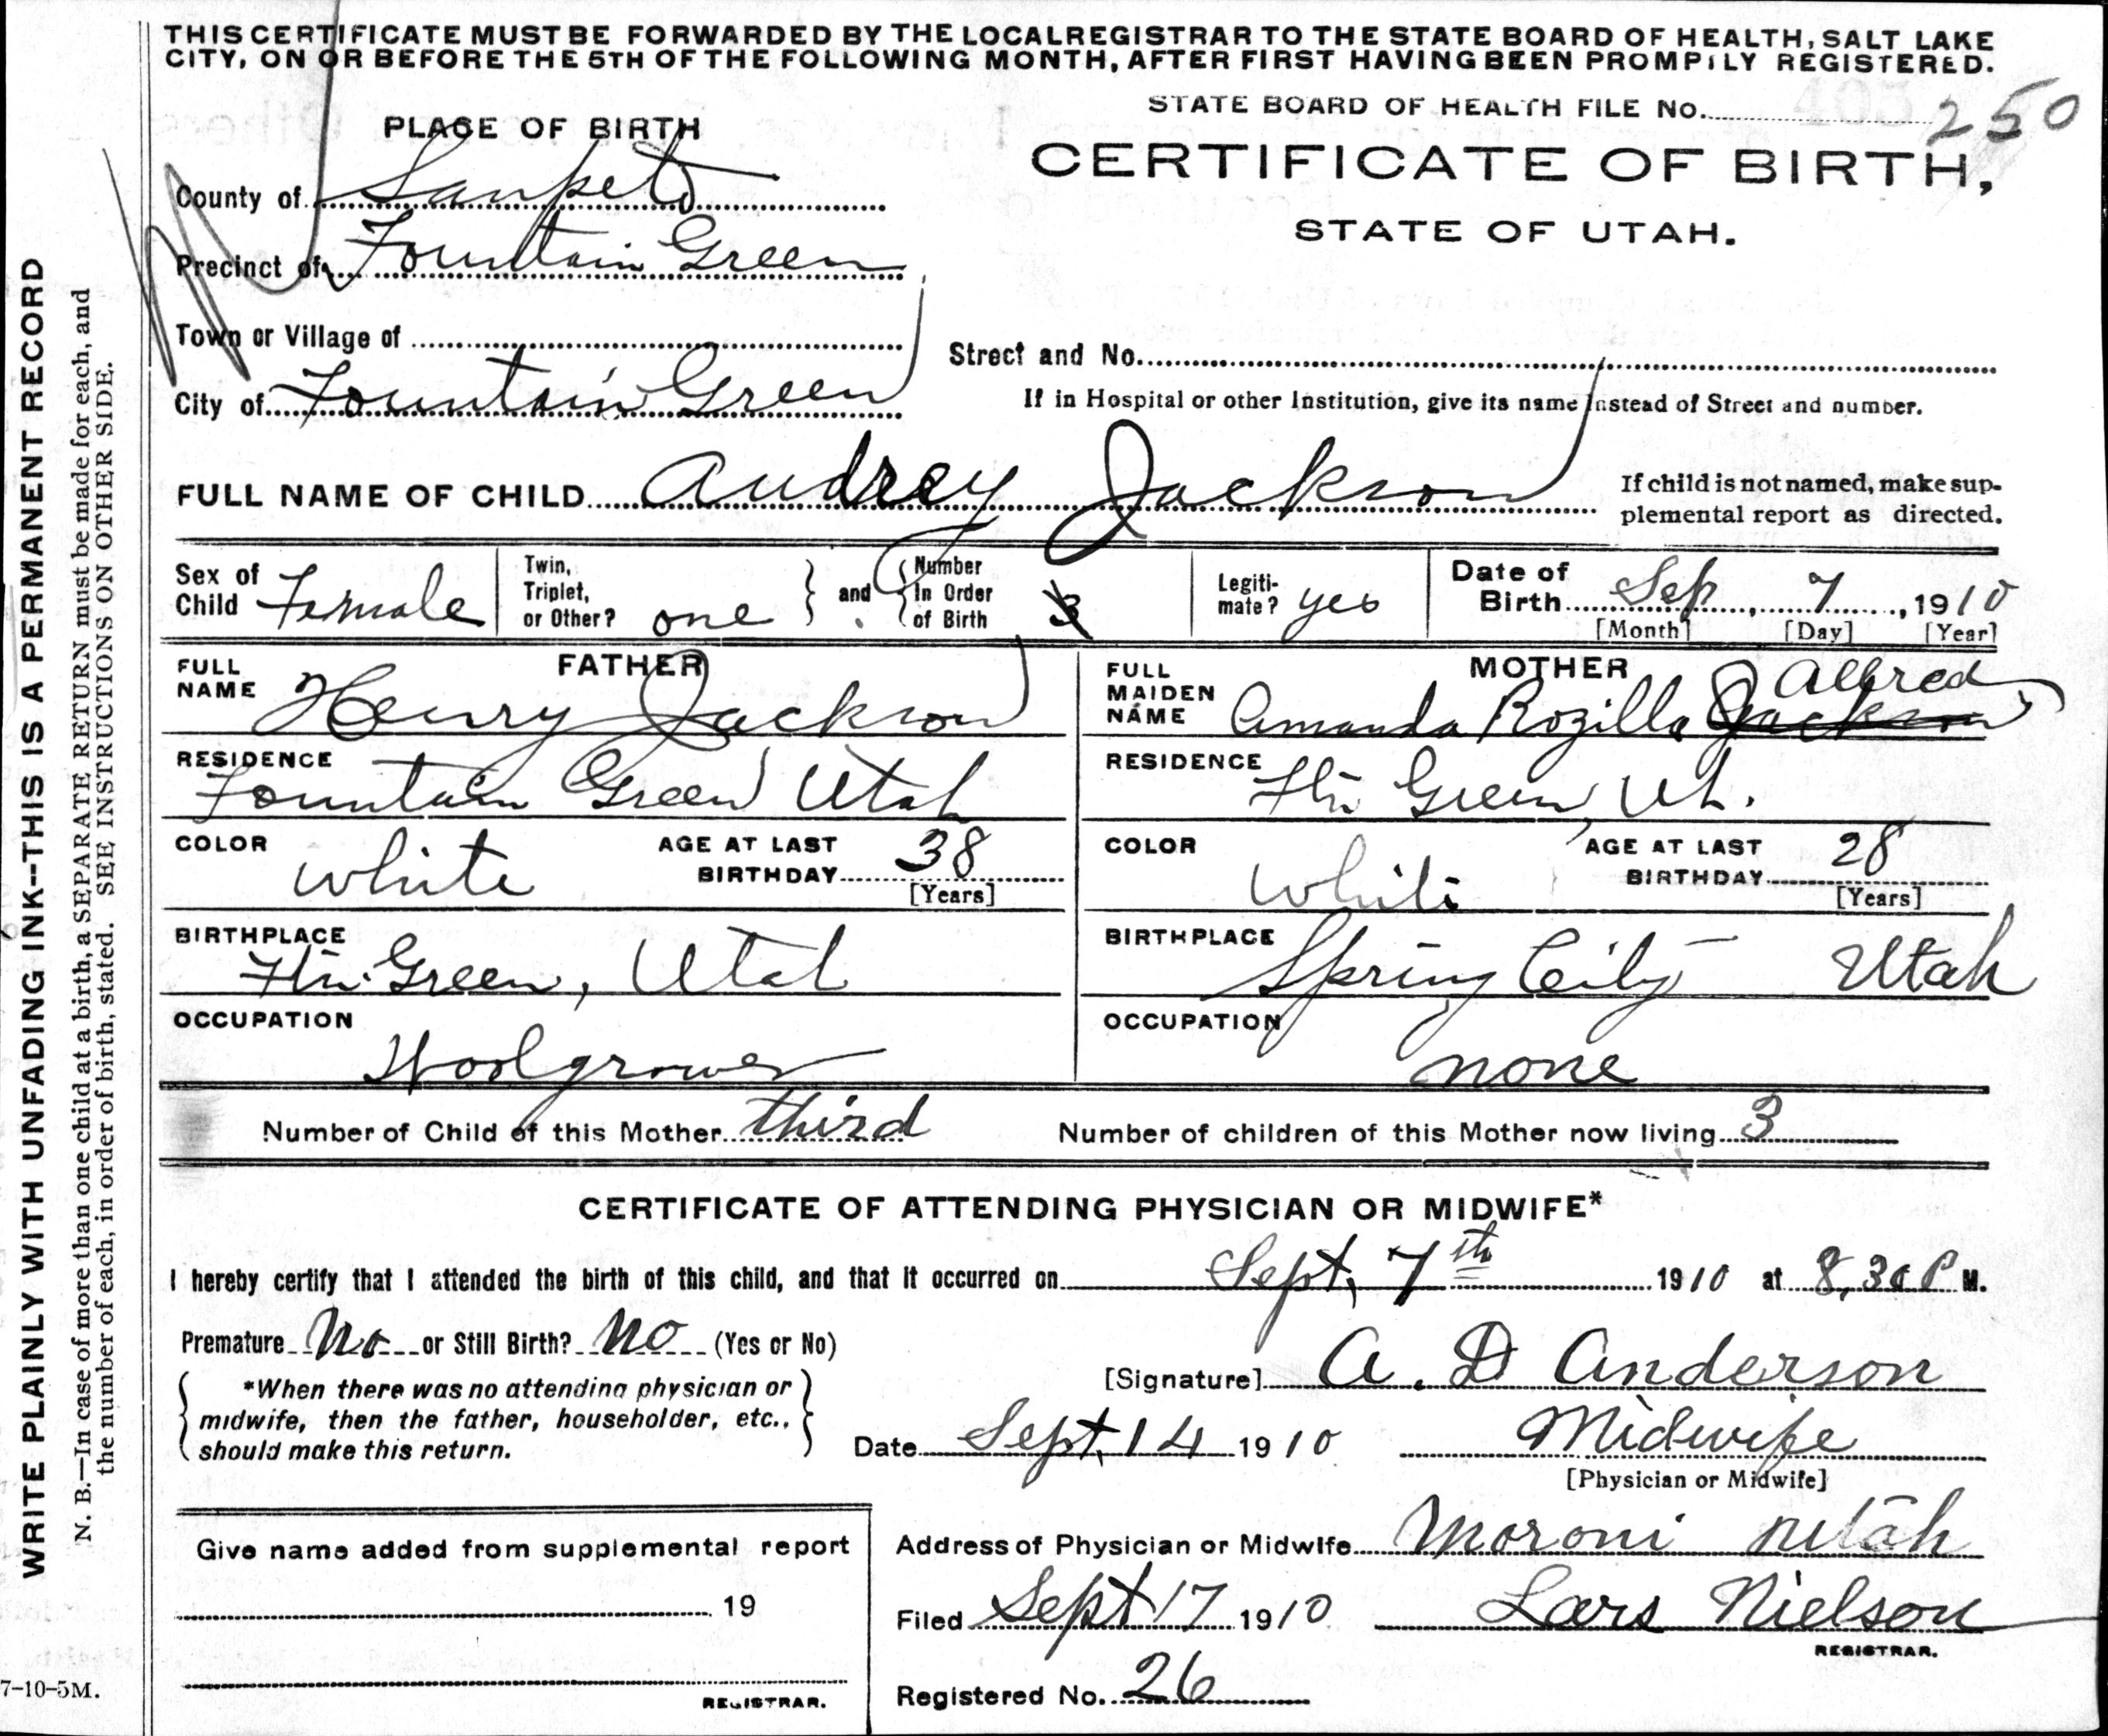 THIS CERTIFICATE MUST BE FORWARDED BY THE LOCAL REGISTRAR TO THE STATE BOARD OF HEALTH, SALT LAKE
CITY, ON OR BEFORE THE 5TH OF THE FOLLOWING MONTH, AFTER FIRST HAVING BEEN PROMPTLY REGISTERED.
STATE BOARD OF HEALTH FILE No. 250
PLACE OF BIRTH
CERTIFICATE OF BIRTH,
STATE OF UTAH.
County of Sanpete
Precinct of Fountain Green
Town or Village of
Street and No.
City of Fountain Green
If in Hospital or other Institution, give its name instead of Street and number.
FULL NAME OF CHILD Audrey Jackson
If child is not named, make sup-
plemental report as directed.
Sex of Child Female
Twin, Triplet, or Other? one
and Number In Order of Birth 3
Legiti-mate? yes
Date of Birth Sep, 7, 1910
[Month] [Day] [Year]
FATHER
FULL NAME Henry Jackson
RESIDENCE
Fountain Green Utah
COLOR white
AGE AT LAST BIRTHDAY 38
[Years]
BIRTHPLACE
Ftn. Green, Utah
OCCUPATION
Woolgrower
MOTHER
FULL MAIDEN NAME Amanda Rozilla Jackson Allred
RESIDENCE Ftn Green, Ut.
COLOR White
AGE AT LAST BIRTHDAY 28
[Years]
BIRTHPLACE Spring City - Utah
OCCUPATION
none
Number of Child of this Mother third
Number of children of this Mother now living 3
CERTIFICATE OF ATTENDING PHYSICIAN OR MIDWIFE*
I hereby certify that I attended the birth of this child, and that it occurred on Sept, 7th 1910 at 8,30 P M.
Premature No or Still Birth? No (Yes or No)
*When there was no attending physician or
midwife, then the father, householder, etc.,
should make this return.
[Signature] A. D Anderson
Date Sept, 14 1910
Midwife
[Physician or Midwife]
Give name added from supplemental report
19
REGISTRAR.
Address of Physician or Midwife Moroni Utah
Filed Sept 17 1910
Lars Nielson
REGISTRAR.
Registered No. 26
WRITE PLAINLY WITH UNFADING INK--THIS IS A PERMANENT RECORD
N. B.—In case of more than one child at a birth, a SEPARATE RETURN must be made for each, and
the number of each, in order of birth, stated. SEE INSTRUCTIONS ON OTHER SIDE.
7-10-5M.